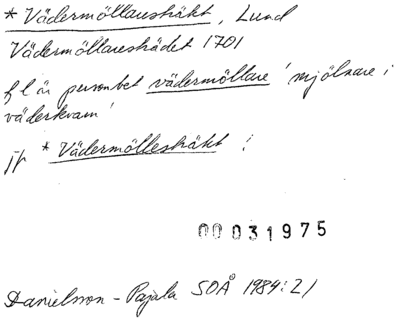 * Vädermöllaresträkt, Lund
Vädermöllareskädet 1701
fl är personbet vädermöllare 'mjölnare i
väderkvarn'
jfr * Vädermöllesträkt !
00031975
Danielsson - Pajala SOÅ 1984:21